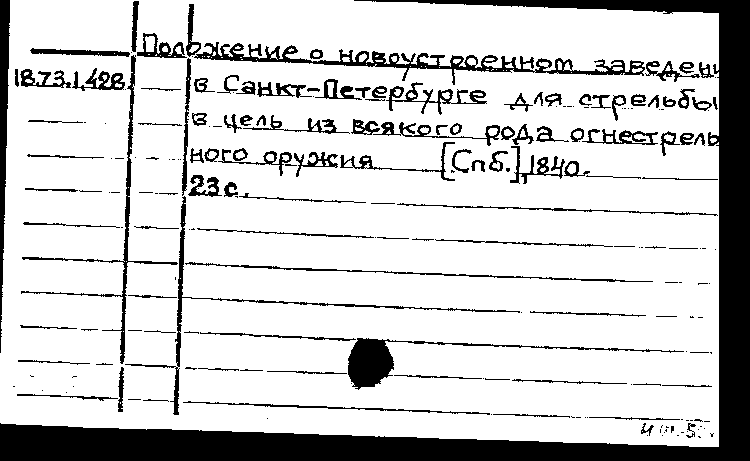 Положение о новоустроенном заведени
18.73.1.428. в Санкт-Петербурге для стрельбы
в цель из всякого рода огнестрель
ного оружия [Спб.], 1840.
23 с.